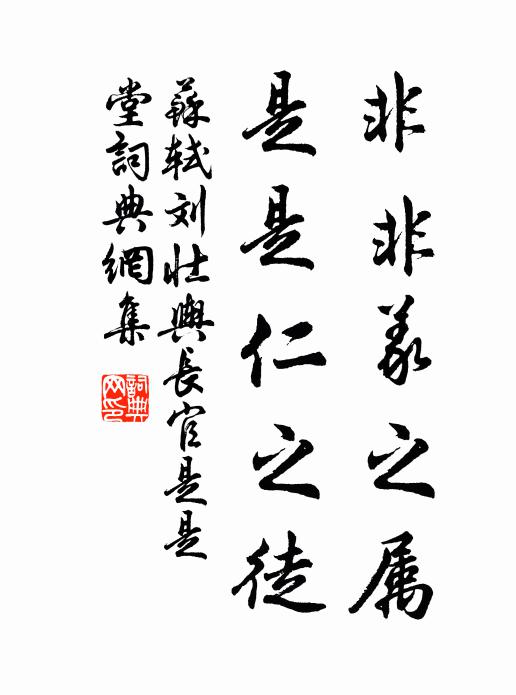 非非義之属
是是仁之徒
蘇軾刘壯輿長官是是
堂詞典網集
詞典网印